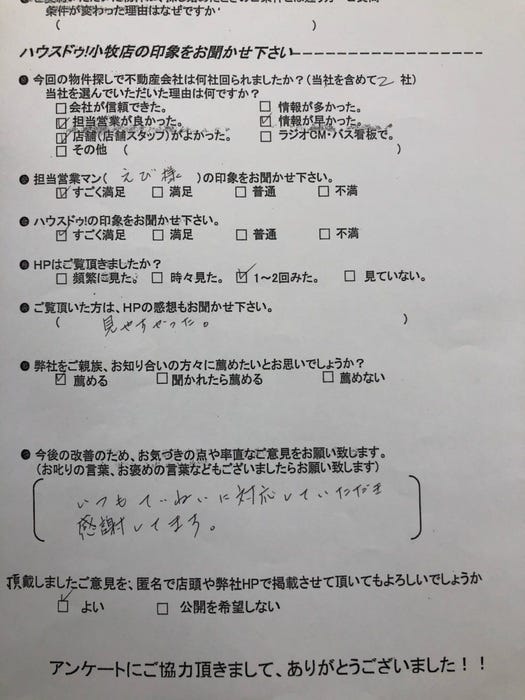 条件が変わった理由はなぜですか
( )
ハウスドゥ!小牧店の印象をお聞かせ下さい
●今回の物件探しで不動産会社は何社回られましたか?(当社を含めて2 社)
当社を選んでいただいた理由は何ですか?
□会社が信頼できた。 □情報が多かった。
☑担当営業が良かった。 ☑情報が早かった。
☑店舗(店舗スタッフ)がよかった。 □ラジオCM・バス看板で。
□その他 ( )
●担当営業マン( えび様 )の印象をお聞かせ下さい。
☑すごく満足 □満足 □普通 □不満
●ハウスドゥ!の印象をお聞かせ下さい。
☑すごく満足 □満足 □普通 □不満
●HPはご覧頂きましたか?
□頻繁に見た。 □時々見た。 ☑1~2回みた。 □見ていない。
●ご覧頂いた方は、HPの感想もお聞かせ下さい。
( 見やすかった。 )
●弊社をご親族、お知り合いの方々に薦めたいとお思いでしょうか?
☑薦める □聞かれたら薦める □薦めない
●今後の改善のため、お気づきの点や率直なご意見をお願い致します。
(お叱りの言葉、お褒めの言葉などもございましたらお願い致します)
いつもていねいに対応していただき
感謝してます。
頂戴しましたご意見を、匿名で店頭や弊社HPで掲載させて頂いてもよろしいでしょうか
☑よい □公開を希望しない
アンケートにご協力頂きまして、ありがとうございました!!